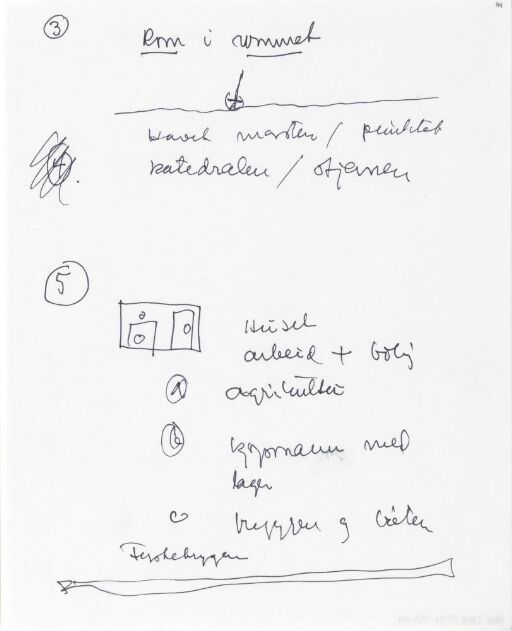 3
Rom i rommet
masten / punktet
katedralen / stjernen
5
Huset
arbeid + bolig
a agrikultur
b kjøpmann med
lager
c bryggen og båten
Fiskebryggen